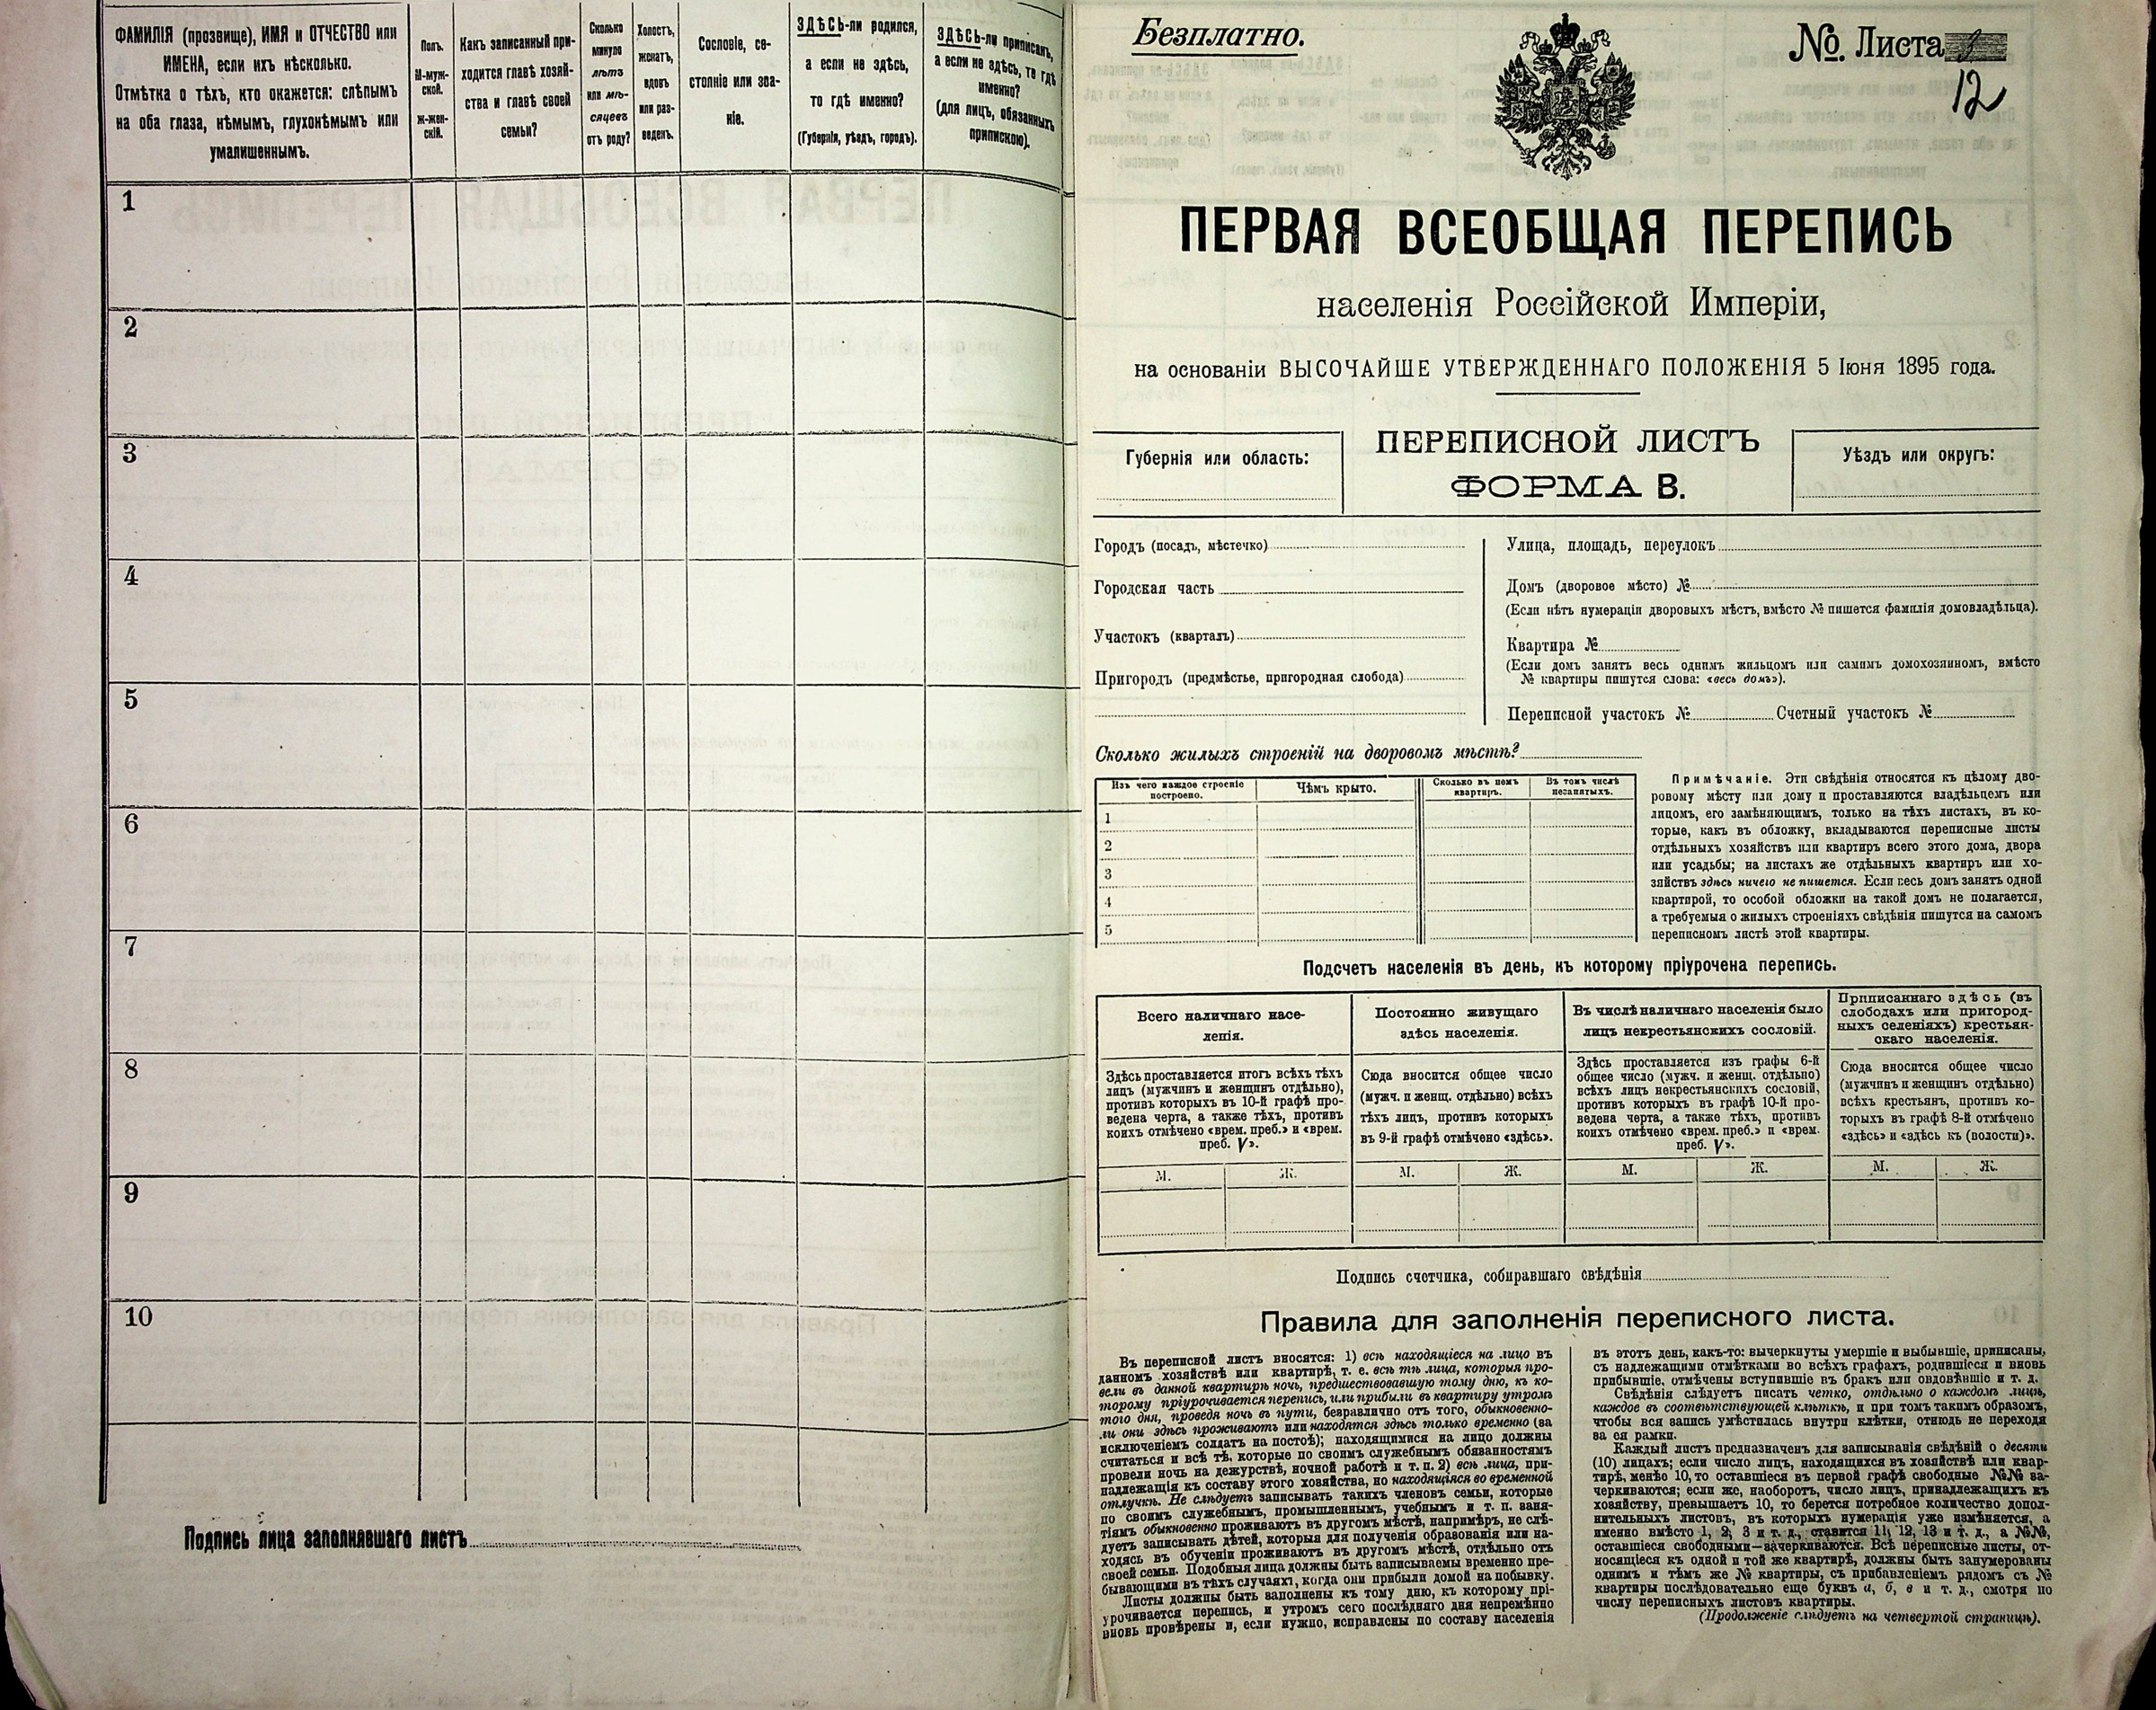 ФАМИЛІЯ (прозвище), ИМЯ и ОТЧЕСТВО или
ИМЕНА, если ихъ нѣсколько.
Отмѣтка о тѣхъ, кто окажется: слѣпымъ
на оба глаза, нѣмымъ, глухонѣмымъ или
умалишеннымъ.
Полъ.
М-муж-
ской.
Ж-жен-
скій.
Какъ записанный при-
ходится главѣ хозяй-
ства и главѣ своей
семьи?
Сколько
минуло
лѣтъ
или мѣ-
сяцевъ
отъ роду?
Холостъ,
женатъ,
вдовъ
или раз-
веденъ.
Сословіе, со-
стояніе или зва-
ніе.
ЗДѢСЬ-ли родился,
а если не здѣсь,
то гдѣ именно?
(Губернія, уѣздъ, городъ).
ЗДѢСЬ-ли приписанъ,
а если не здѣсь, то гдѣ
именно?
(для лицъ, обязанныхъ
припискою).
1
2
3
4
5
6
7
8
9
10
Подпись лица заполнявшаго листъ
Безплатно.
№ Листа
12
ПЕРВАЯ ВСЕОБЩАЯ ПЕРЕПИСЬ
населенія Россійской Имперіи,
на основаніи ВЫСОЧАЙШЕ УТВЕРЖДЕННАГО ПОЛОЖЕНІЯ 5 Іюня 1895 года.
Губернія или область:
ПЕРЕПИСНОЙ ЛИСТЪ
ФОРМА В.
Уѣздъ или округъ:
Городъ (посадъ, мѣстечко)
Городская часть
Участокъ (кварталъ)
Пригородъ (предмѣстье, пригородная слобода)
Улица, площадь, переулокъ
Домъ (дворовое мѣсто) №
(Если нѣтъ нумераціи дворовыхъ мѣстъ, вмѣсто № пишется фамилія домовладѣльца).
Квартира №
(Если домъ занятъ весь однимъ жильцомъ или самимъ домохозяиномъ, вмѣсто
№ квартиры пишутся слова: «весь домъ»).
Переписной участокъ № Счетный участокъ №
Сколько жилыхъ строеній на дворовомъ мѣстѣ?
Изъ чего каждое строеніе
построено.
Чѣмъ крыто.
Сколько въ немъ
квартиръ.
Въ томъ числѣ
незанятыхъ.
1
2
3
4
5
Примѣчаніе. Эти свѣдѣнія относятся къ цѣлому дво-
ровому мѣсту или дому и проставляются владѣльцемъ или
лицомъ, его замѣняющимъ, только на тѣхъ листахъ, въ ко-
торые, какъ въ обложку, вкладываются переписные листы
отдѣльныхъ хозяйствъ или квартиръ всего этого дома, двора
или усадьбы; на листахъ же отдѣльныхъ квартиръ или хо-
зяйствъ здѣсь ничего не пишется. Если весь домъ занятъ одной
квартирой, то особой обложки на такой домъ не полагается,
а требуемыя о жилыхъ строеніяхъ свѣдѣнія пишутся на самомъ
переписномъ листѣ этой квартиры.
Подсчетъ населенія въ день, къ которому пріурочена перепись.
Всего наличнаго насе-
ленія.
Здѣсь проставляется итогъ всѣхъ тѣхъ
лицъ (мужчинъ и женщинъ отдѣльно),
противъ которыхъ въ 10-й графѣ про-
ведена черта, а также тѣхъ, противъ
коихъ отмѣчено «врем. преб.» и «врем.
преб. V».
Постоянно живущаго
здѣсь населенія.
Сюда вносится общее число
(мужч. и женщ. отдѣльно) всѣхъ
тѣхъ лицъ, противъ которыхъ
въ 9-й графѣ отмѣчено «здѣсь».
Въ числѣ наличнаго населенія было
лицъ некрестьянскихъ сословій.
Здѣсь проставляется изъ графы 6-й
общее число (мужч. и женщ. отдѣльно)
всѣхъ лицъ некрестьянскихъ сословій,
противъ которыхъ въ графѣ 10-й про-
ведена черта, а также тѣхъ, противъ
коихъ отмѣчено «врем. преб.» и «врем.
преб. V».
Приписаннаго здѣсь (въ
слободахъ или пригород-
ныхъ селеніяхъ) крестьян-
скаго населенія.
Сюда вносится общее число
(мужчинъ и женщинъ отдѣльно)
всѣхъ крестьянъ, противъ ко-
торыхъ въ графѣ 8-й отмѣчено
«здѣсь» и «здѣсь къ (волости)».
М. Ж. М. Ж. М. Ж. М. Ж.
Подпись счетчика, собиравшаго свѣдѣнія
Правила для заполненія переписного листа.
Въ переписной листъ вносятся: 1) всѣ находящіеся на лицо въ
данномъ хозяйствѣ или квартирѣ, т. е. всѣ тѣ лица, которыя про-
вели въ данной квартирѣ ночь, предшествовавшую тому дню, къ ко-
торому пріурочивается перепись, или прибыли въ квартиру утромъ
того дня, проведя ночь въ пути, безразлично отъ того, обыкновенно-
ли они здѣсь проживаютъ или находятся здѣсь только временно (за
исключеніемъ солдатъ на постоѣ); находящимися на лицо должны
считаться и всѣ тѣ, которые по своимъ служебнымъ обязанностямъ
провели ночь на дежурствѣ, ночной работѣ и т. п. 2) всѣ лица, при-
надлежащія къ составу этого хозяйства, но находящіяся во временной
отлучкѣ. Не слѣдуетъ записывать такихъ членовъ семьи, которые
по своимъ служебнымъ, промышленнымъ, учебнымъ и т. п. заня-
тіямъ обыкновенно проживаютъ въ другомъ мѣстѣ, напримѣръ, не слѣ-
дуетъ записывать дѣтей, которыя для полученія образованія или на-
ходясь въ обученіи проживаютъ въ другомъ мѣстѣ, отдѣльно отъ
своей семьи. Подобныя лица должны быть записываемы временно пре-
бывающими въ тѣхъ случаяхъ, когда они прибыли домой на побывку.
Листы должны быть заполнены къ тому дню, къ которому прі-
урочивается перепись, и утромъ сего послѣдняго дня непремѣнно
вновь провѣрены и, если нужно, исправлены по составу населенія
въ этотъ день, какъ-то: вычеркнуты умершіе и выбывшіе, приписаны,
съ надлежащими отмѣтками во всѣхъ графахъ, родившіеся и вновь
прибывшіе, отмѣчены вступившіе въ бракъ или овдовѣвшіе и т. д.
Свѣдѣнія слѣдуетъ писать четко, отдѣльно о каждомъ лицѣ,
каждое въ соотвѣтствующей клѣткѣ, и при томъ такимъ образомъ,
чтобы вся запись умѣстилась внутри клѣтки, отнюдь не переходя
за ея рамки.
Каждый листъ предназначенъ для записыванія свѣдѣній о десяти
(10) лицахъ; если число лицъ, находящихся въ хозяйствѣ или квар-
тирѣ, менѣе 10, то оставшіеся въ первой графѣ свободные №№ за-
черкиваются; если же, наоборотъ, число лицъ, принадлежащихъ къ
хозяйству, превышаетъ 10, то берется потребное количество допол-
нительныхъ листовъ, въ которыхъ нумерація уже измѣняется, а
именно вмѣсто 1, 2, 3 и т. д., ставится 11, 12, 13 и т. д., а №№,
оставшіеся свободными—зачеркиваются. Всѣ переписные листы, от-
носящіеся къ одной и той же квартирѣ, должны быть занумерованы
однимъ и тѣмъ же № квартиры, съ прибавленіемъ рядомъ съ №
квартиры послѣдовательно еще буквъ а, б, в и т. д., смотря по
числу переписныхъ листовъ квартиры.
(Продолженіе слѣдуетъ на четвертой страницѣ).